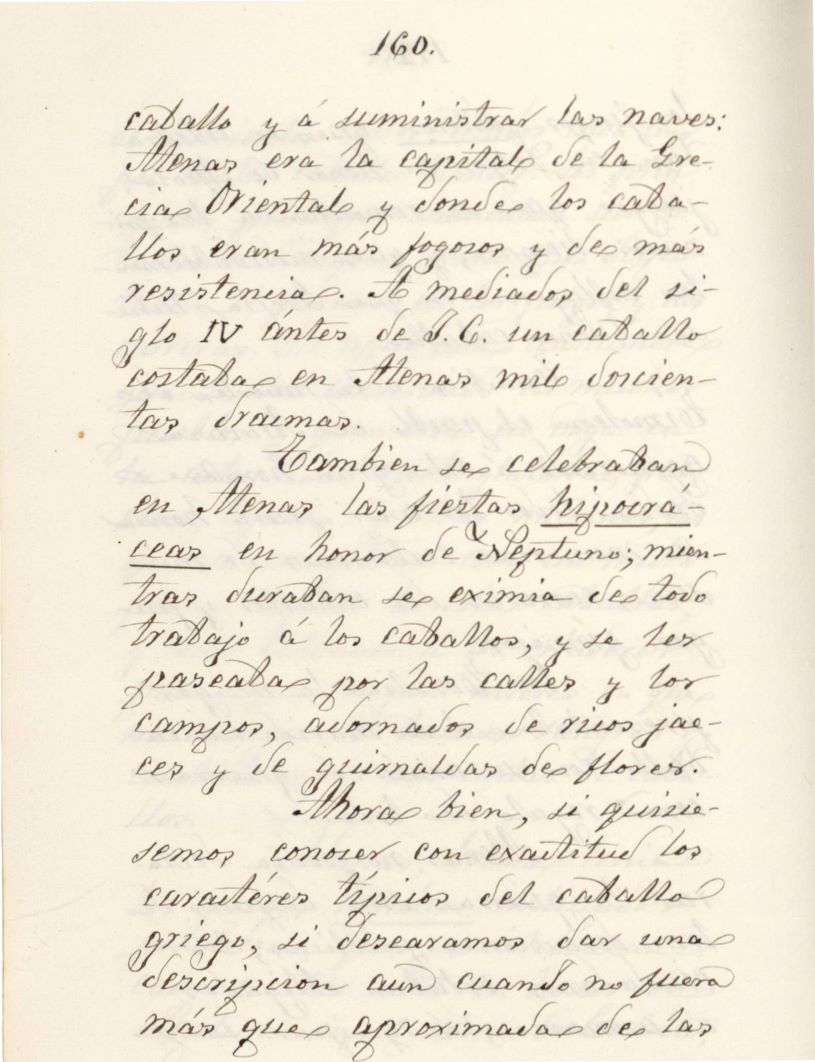 160.
caballo y á suministrar las naves:
Atenas era la capital de la Gre-
cia Oriental y donde los caba-
llos eran más fogosos y de más
resistencia. A mediados del si-
glo IV ántes de J. C. un caballo
costaba en Atenas mil doscien-
tas dracmas.
Tambien se celebraban
en Atenas las fiestas hipocrá-
ceas en honor de Neptuno; mien-
tras duraban se eximia de todo
trabajo á los caballos, y se les
paseaba por las calles y los
campos, adornados de ricos jae-
ces y de guirnaldas de flores.
Ahora bien, si quisie-
semos conocer con exactitud los
caractéres típicos del caballo
griego, si desearamos dar una
descripcion aun cuando no fuera
más que aproximada de las